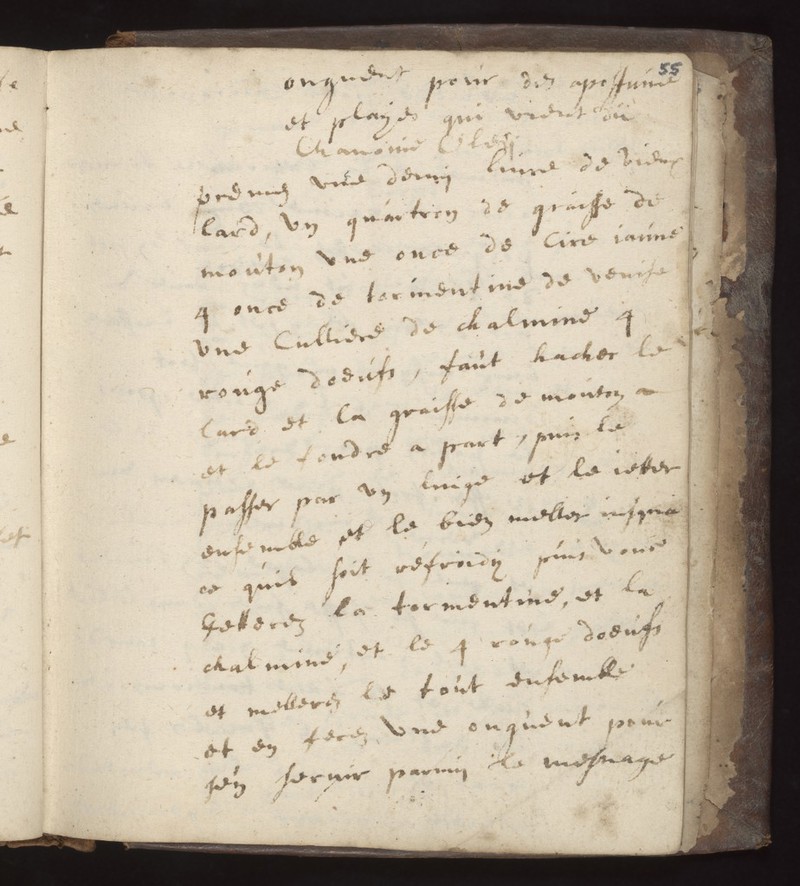 55
onguent pour des apostume
et playes qui vient du
Chanoine
prennes une demy livre de vieux
lard, un quartron de graisse de
mouton une once de cire iaune
4 once de tormentine de venise
une culliere de chalmine 4
rouge doeufs, faut hacher le
lard et la graisse de mouton
et le fondre a part, puis le
passer par un linge et le ietter
ensemble et le bien meller iusqua
ce quil soit refroidy puis vous
Getterez la tormentine, et la
chalmine, et le 4 rouge doeufs
et mellerez le tout ensemble
et en ferez une onguent pour
sen servir parmy le mesnage